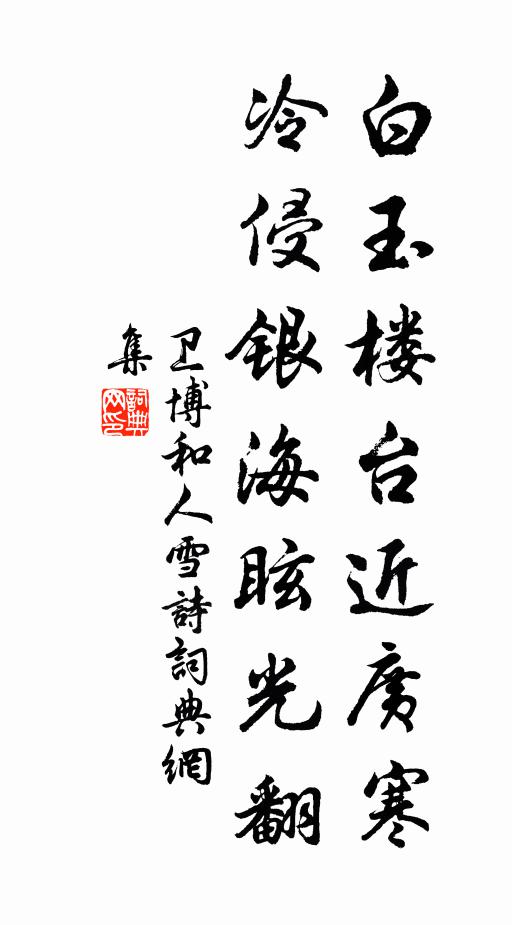 白玉楼台近廣寒
冷侵銀海眩光翻
卫博和人雪詩詞典網
集
詞典网印